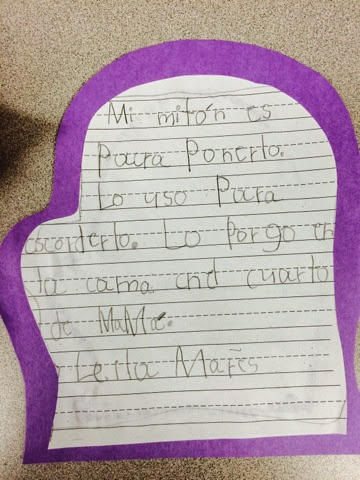 Mi mitón es
Para Ponerlo.
Lo uso Para
escorderlo. Lo Porgo en
la cama end cuarto
de MaMá.